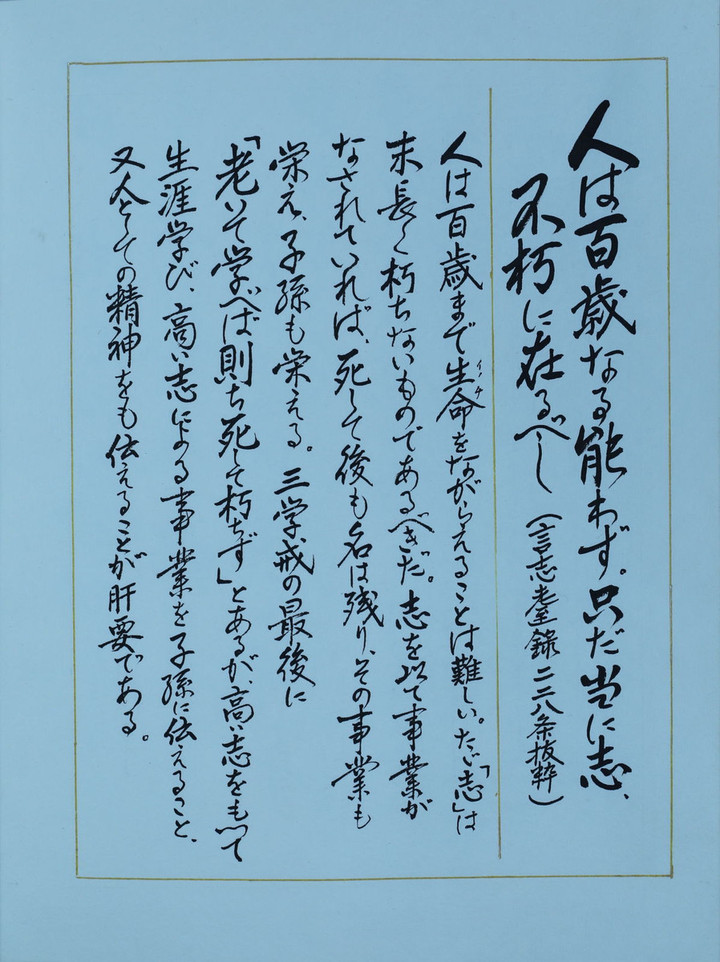 人は百歳なる能わず。只だ当に志、
不朽に在るべし(言志耋録二二八条抜粋)
人は百歳まで生命をながらえることは難しい。ただ「志」は
イノチ
末長く朽ちないものであるべきだ。志を以て事業が
なされていれば、死して後も名は残り、その事業も
栄え、子孫も栄える。三学戒の最後に
「老いて学べば則ち死して朽ちず」とあるが、高い志をもって
生涯学び、高い志による事業を子孫に伝えること、
又人としての精神をも伝えることが肝要である。